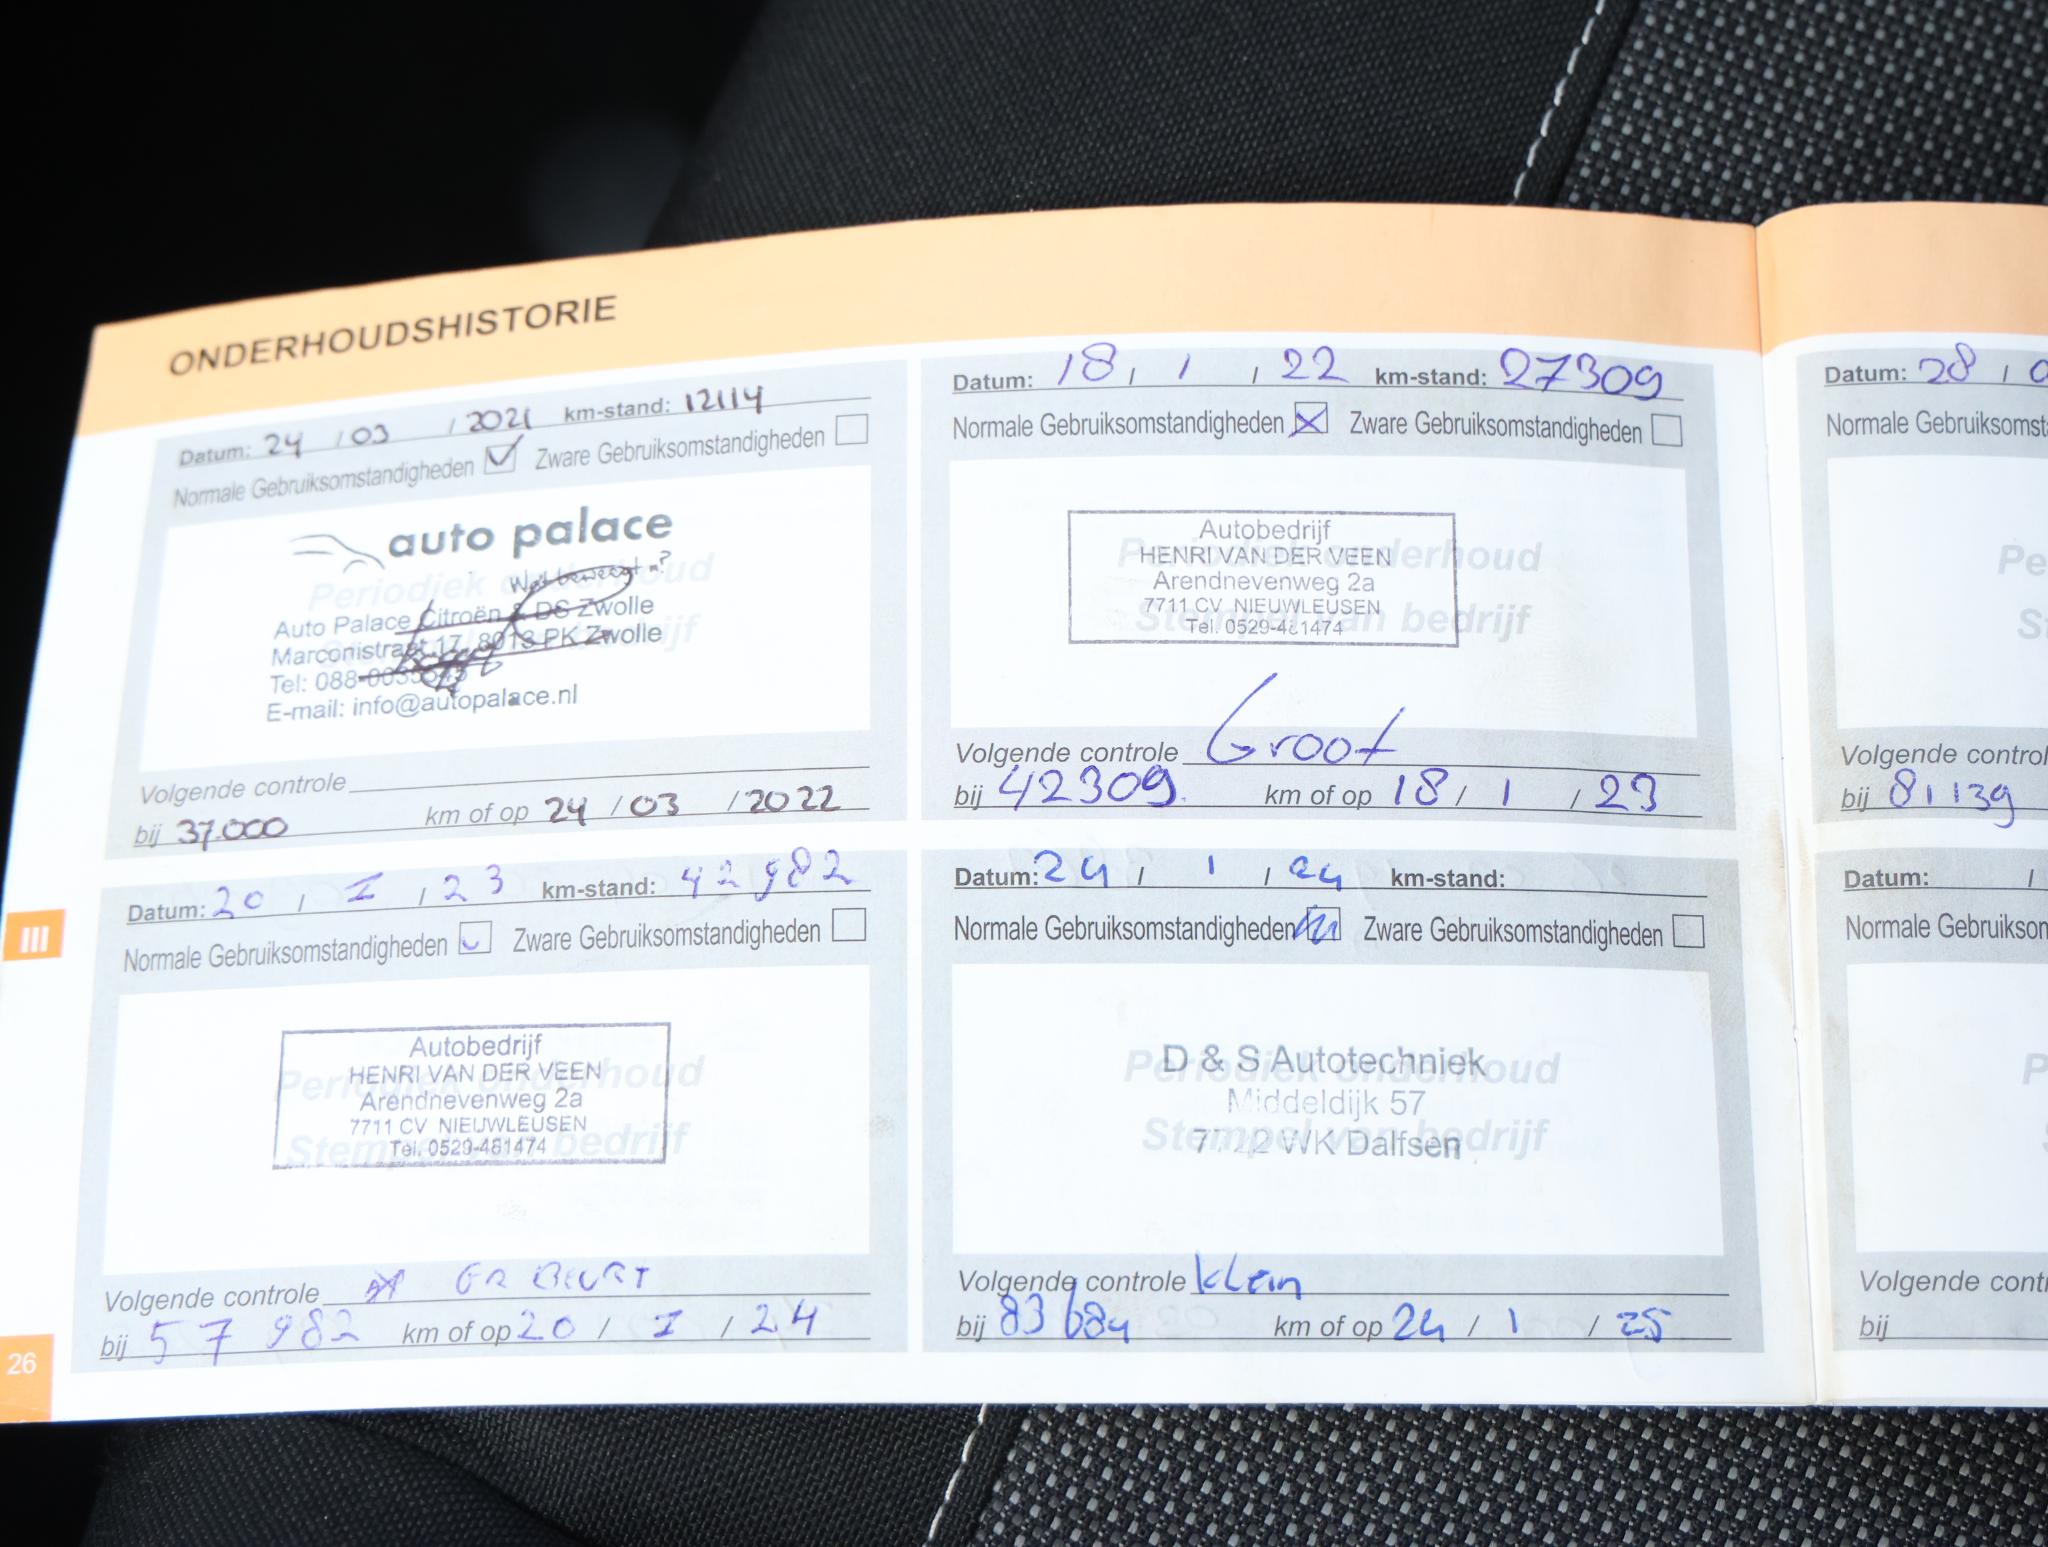 ONDERHOUDSHISTORIE
Datum: 24 / 03 / 2021 km-stand: 12114
Normale Gebruiksomstandigheden Zware Gebruiksomstandigheden
auto palace
Wat beweegt u?
Periodiek onderhoud
Auto Palace Citroën & DS Zwolle
Marconistraat 17, 8013 PK Zwolle
Tel: 088-
E-mail: info@autopalace.nl
Volgende controle
bij 37.000 km of op 24 / 03 / 2022
Datum: 18 / 1 / 22 km-stand: 27309
Normale Gebruiksomstandigheden Zware Gebruiksomstandigheden
Autobedrijf
HENRI VAN DER VEEN
Periodiek onderhoud
Arendnevenweg 2a
7711 CV NIEUWLEUSEN
Stempel van bedrijf
Tel. 0529-481474
Volgende controle Groot
bij 42309 km of op 18 / 1 / 23
Datum: 20 / I / 23 km-stand: 42982
Normale Gebruiksomstandigheden Zware Gebruiksomstandigheden
Autobedrijf
HENRI VAN DER VEEN
Periodiek onderhoud
Arendnevenweg 2a
7711 CV NIEUWLEUSEN
Stempel van bedrijf
Tel. 0529-481474
Volgende controle GR BEURT
bij 57982 km of op 20 / I / 24
Datum: 24 / 1 / 24 km-stand:
Normale Gebruiksomstandigheden Zware Gebruiksomstandigheden
D & S Autotechniek
Periodiek onderhoud
Middeldijk 57
Stempel van bedrijf
7722 WK Dalfsen
Volgende controle Klein
bij 83684 km of op 24 / 1 / 25
III
26
Datum: 28 / 0
Normale Gebruiksomst
Pe
St
Volgende control
bij 81139
Datum: /
Normale Gebruikson
P
Volgende cont
bij